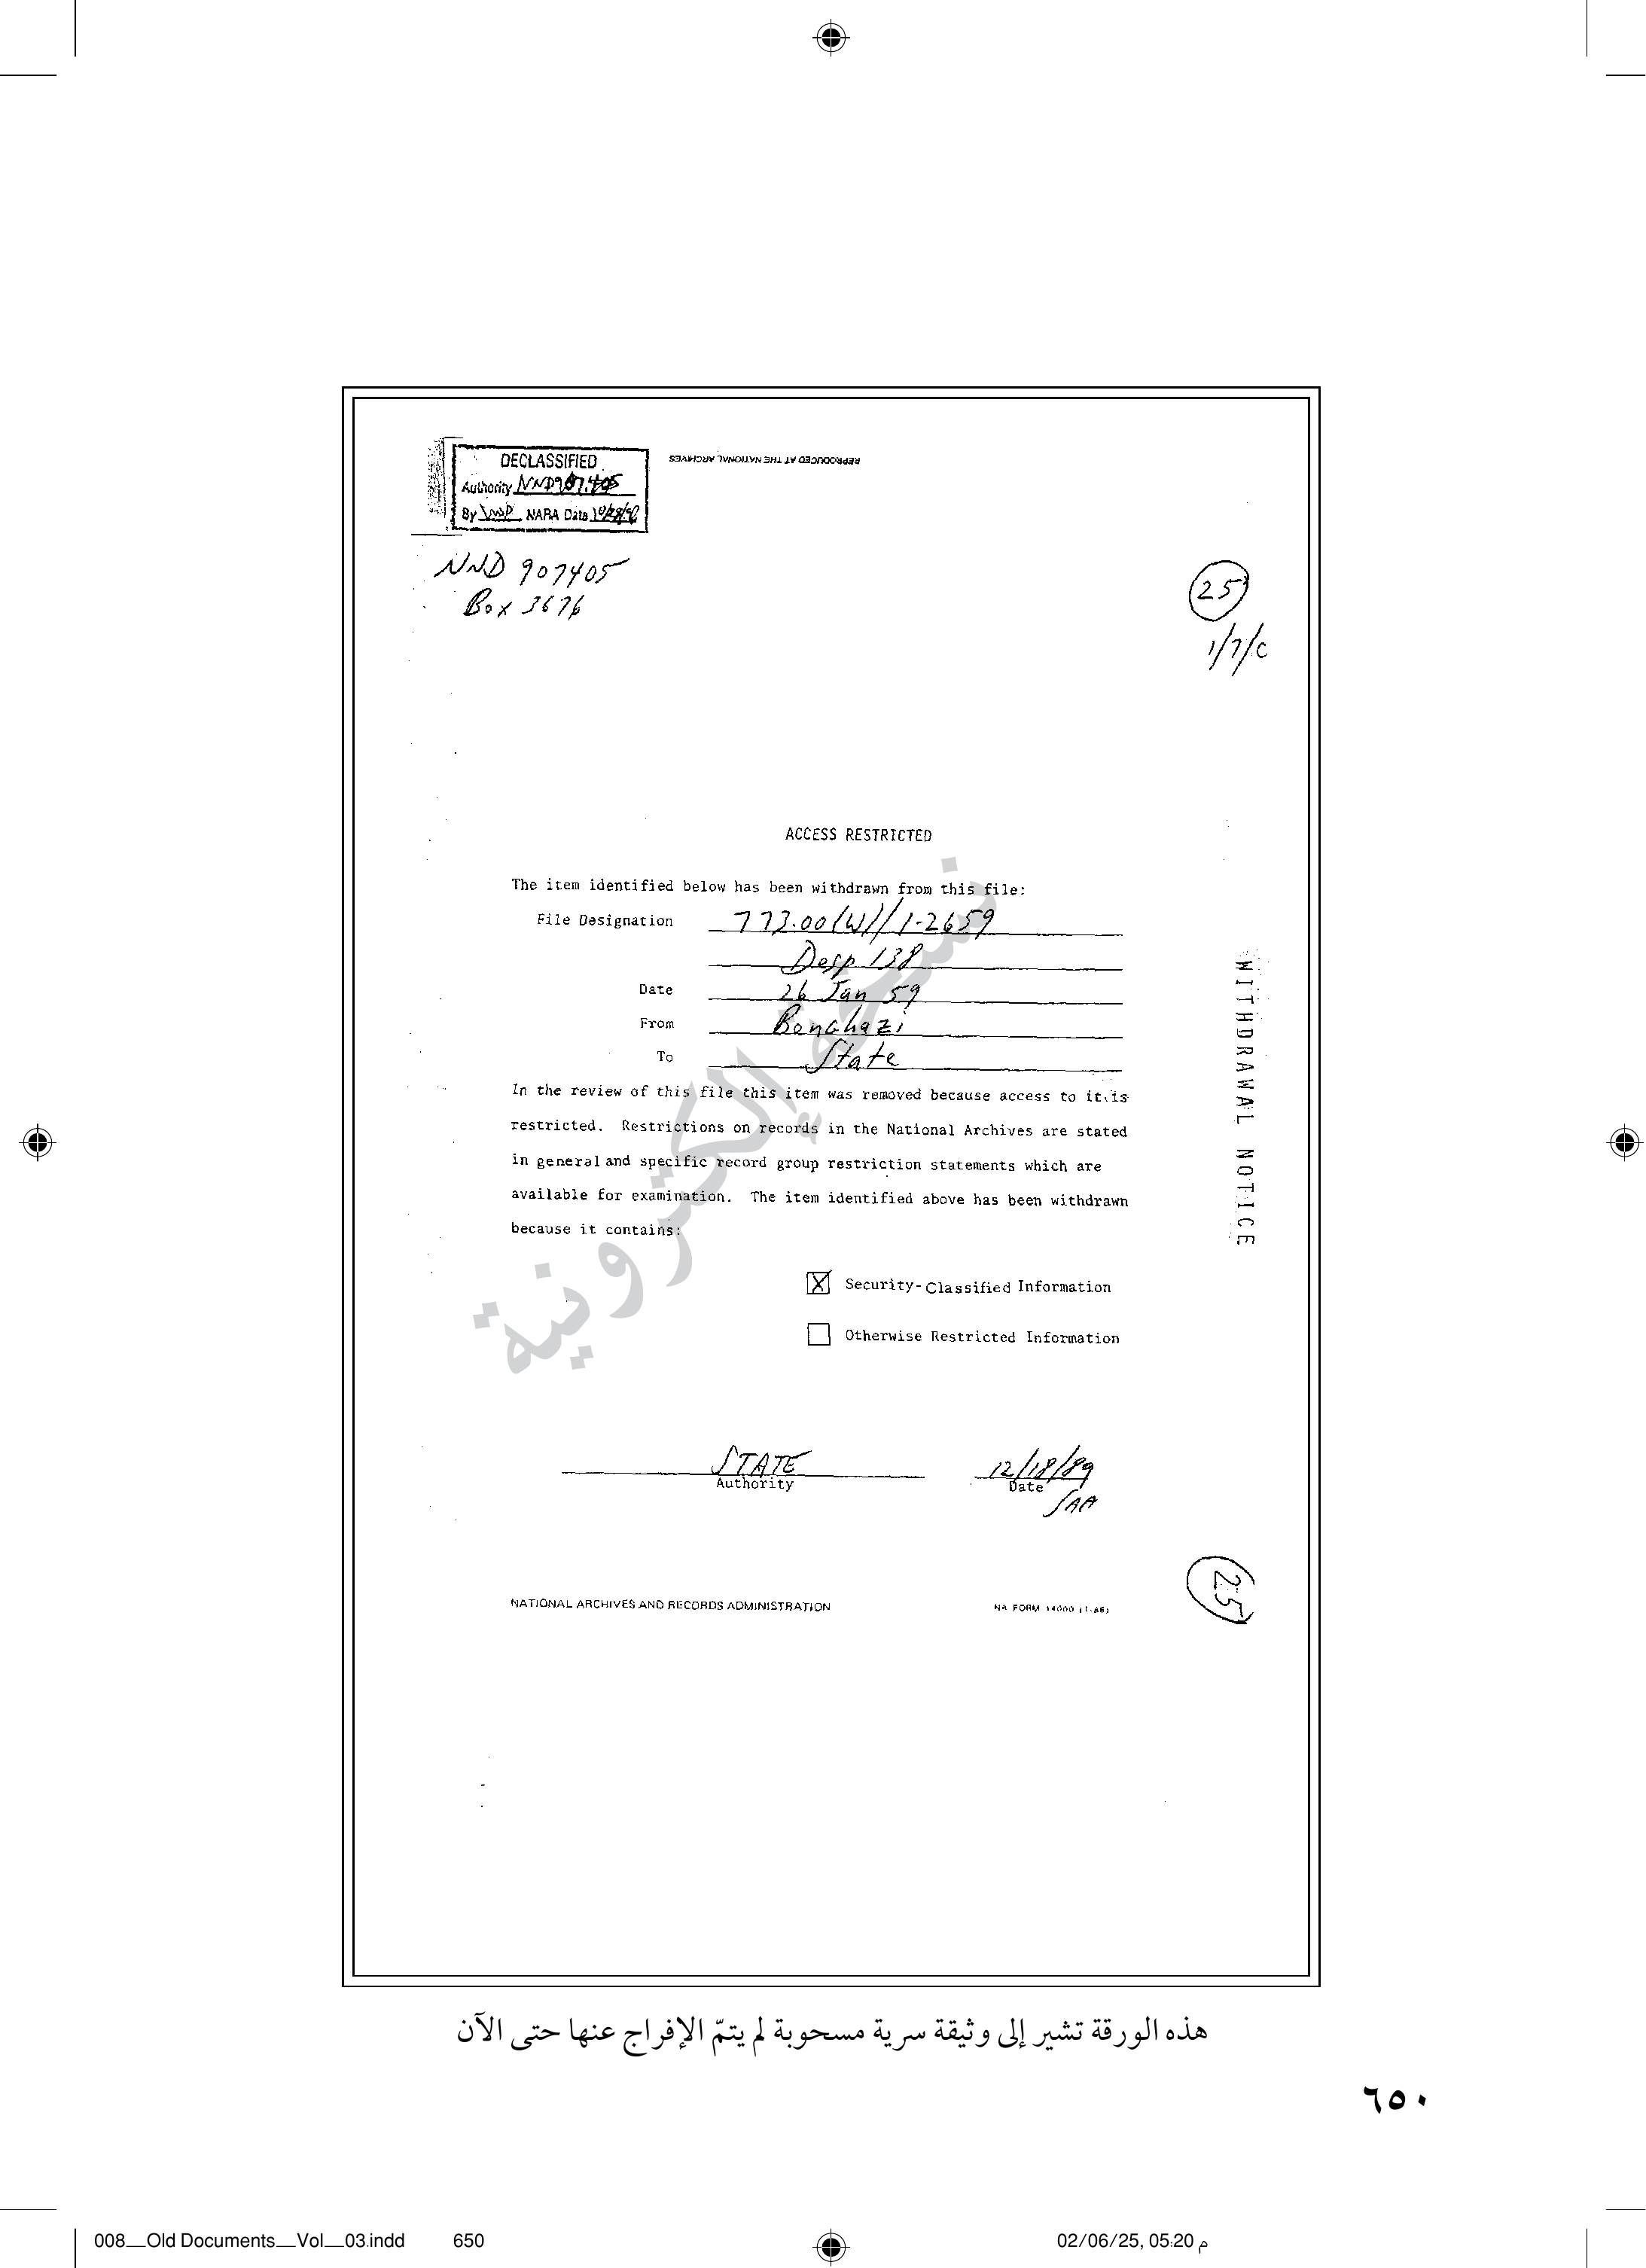 DECLASSIFIED
Authority NND907405
By NARA Date
REPRODUCED AT THE NATIONAL ARCHIVES
NND 907405
Box 3676
25
1/7/C
ACCESS RESTRICTED
The item identified below has been withdrawn from this file:
File Designation 773.00(W)/1-2659
Desp 138
Date 26 Jan 59
From Benghazi
To State
In the review of this file this item was removed because access to it is
restricted. Restrictions on records in the National Archives are stated
in general and specific record group restriction statements which are
available for examination. The item identified above has been withdrawn
because it contains:
X Security-Classified Information
Otherwise Restricted Information
WITHDRAWAL NOTICE
STATE 12/18/89
Authority Date
SAA
25
NATIONAL ARCHIVES AND RECORDS ADMINISTRATION NA FORM 14000 (1-86)
نسخة إلكترونية
هذه الورقة تشير إلى وثيقة سرية مسحوبة لم يتمّ الإفراج عنها حتى الآن
٦٥٠
008_Old Documents_Vol_03.indd 650 02/06/25, 05:20 م